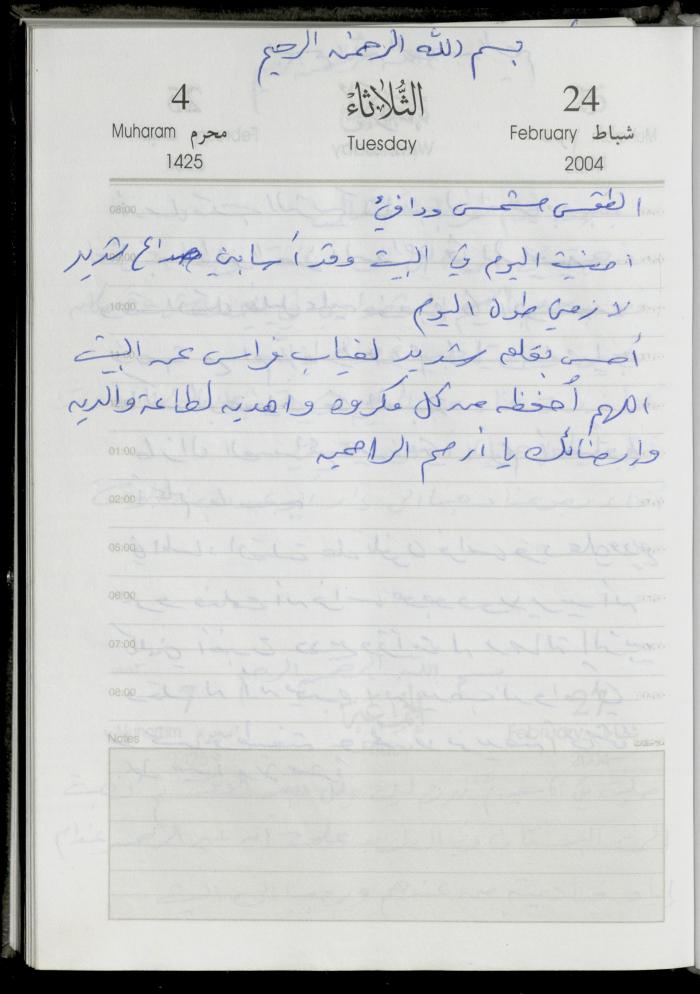 بسم الله الرحمن الرحيم
4 الثلاثاء 24
Muharam محرم Tuesday February شباط
1425 2004
الطقس مشمس ودافئ
امضيت اليوم في البيت وقد أصابني صداع شديد
لازمني طول اليوم
أحس بقلق شديد لغياب فراس عن البيت
اللهم أحفظه من كل مكروه واهديه لطاعة والديه
وإرضائك يا أرحم الراحمين
08:00
10:00
01:00
02:00
05:00
06:00
07:00
08:00
Notes